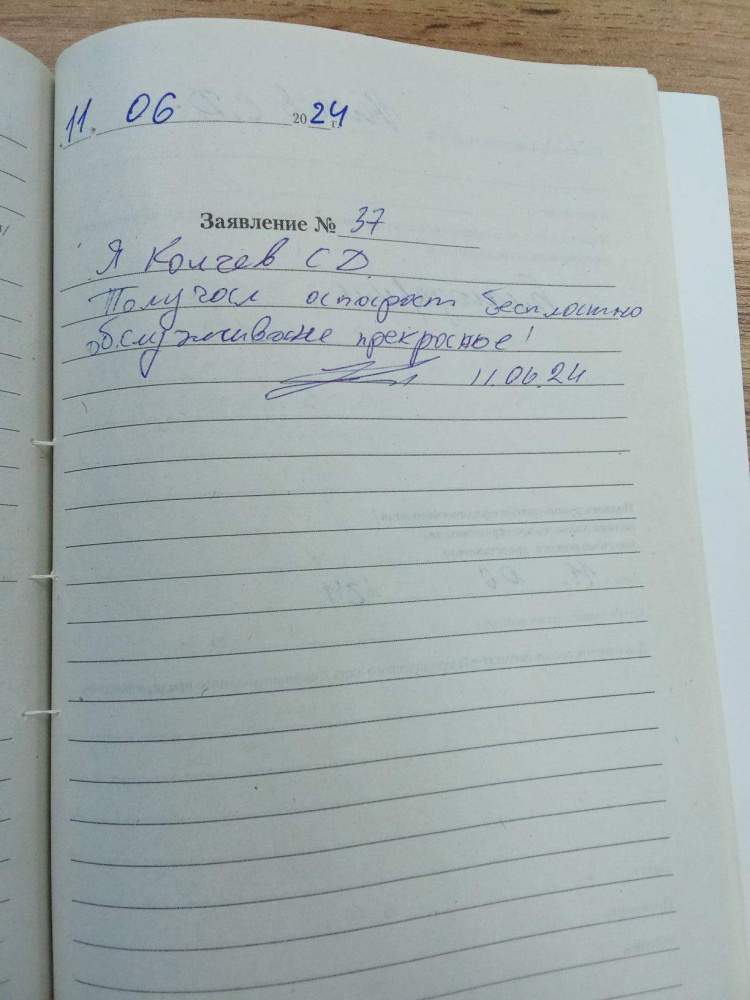 11. 06 2024 г.
Заявление № 37
Я Колчев С Д
Получал оспаграст бесплатно
обслуживане прекрасные!
11.06.24